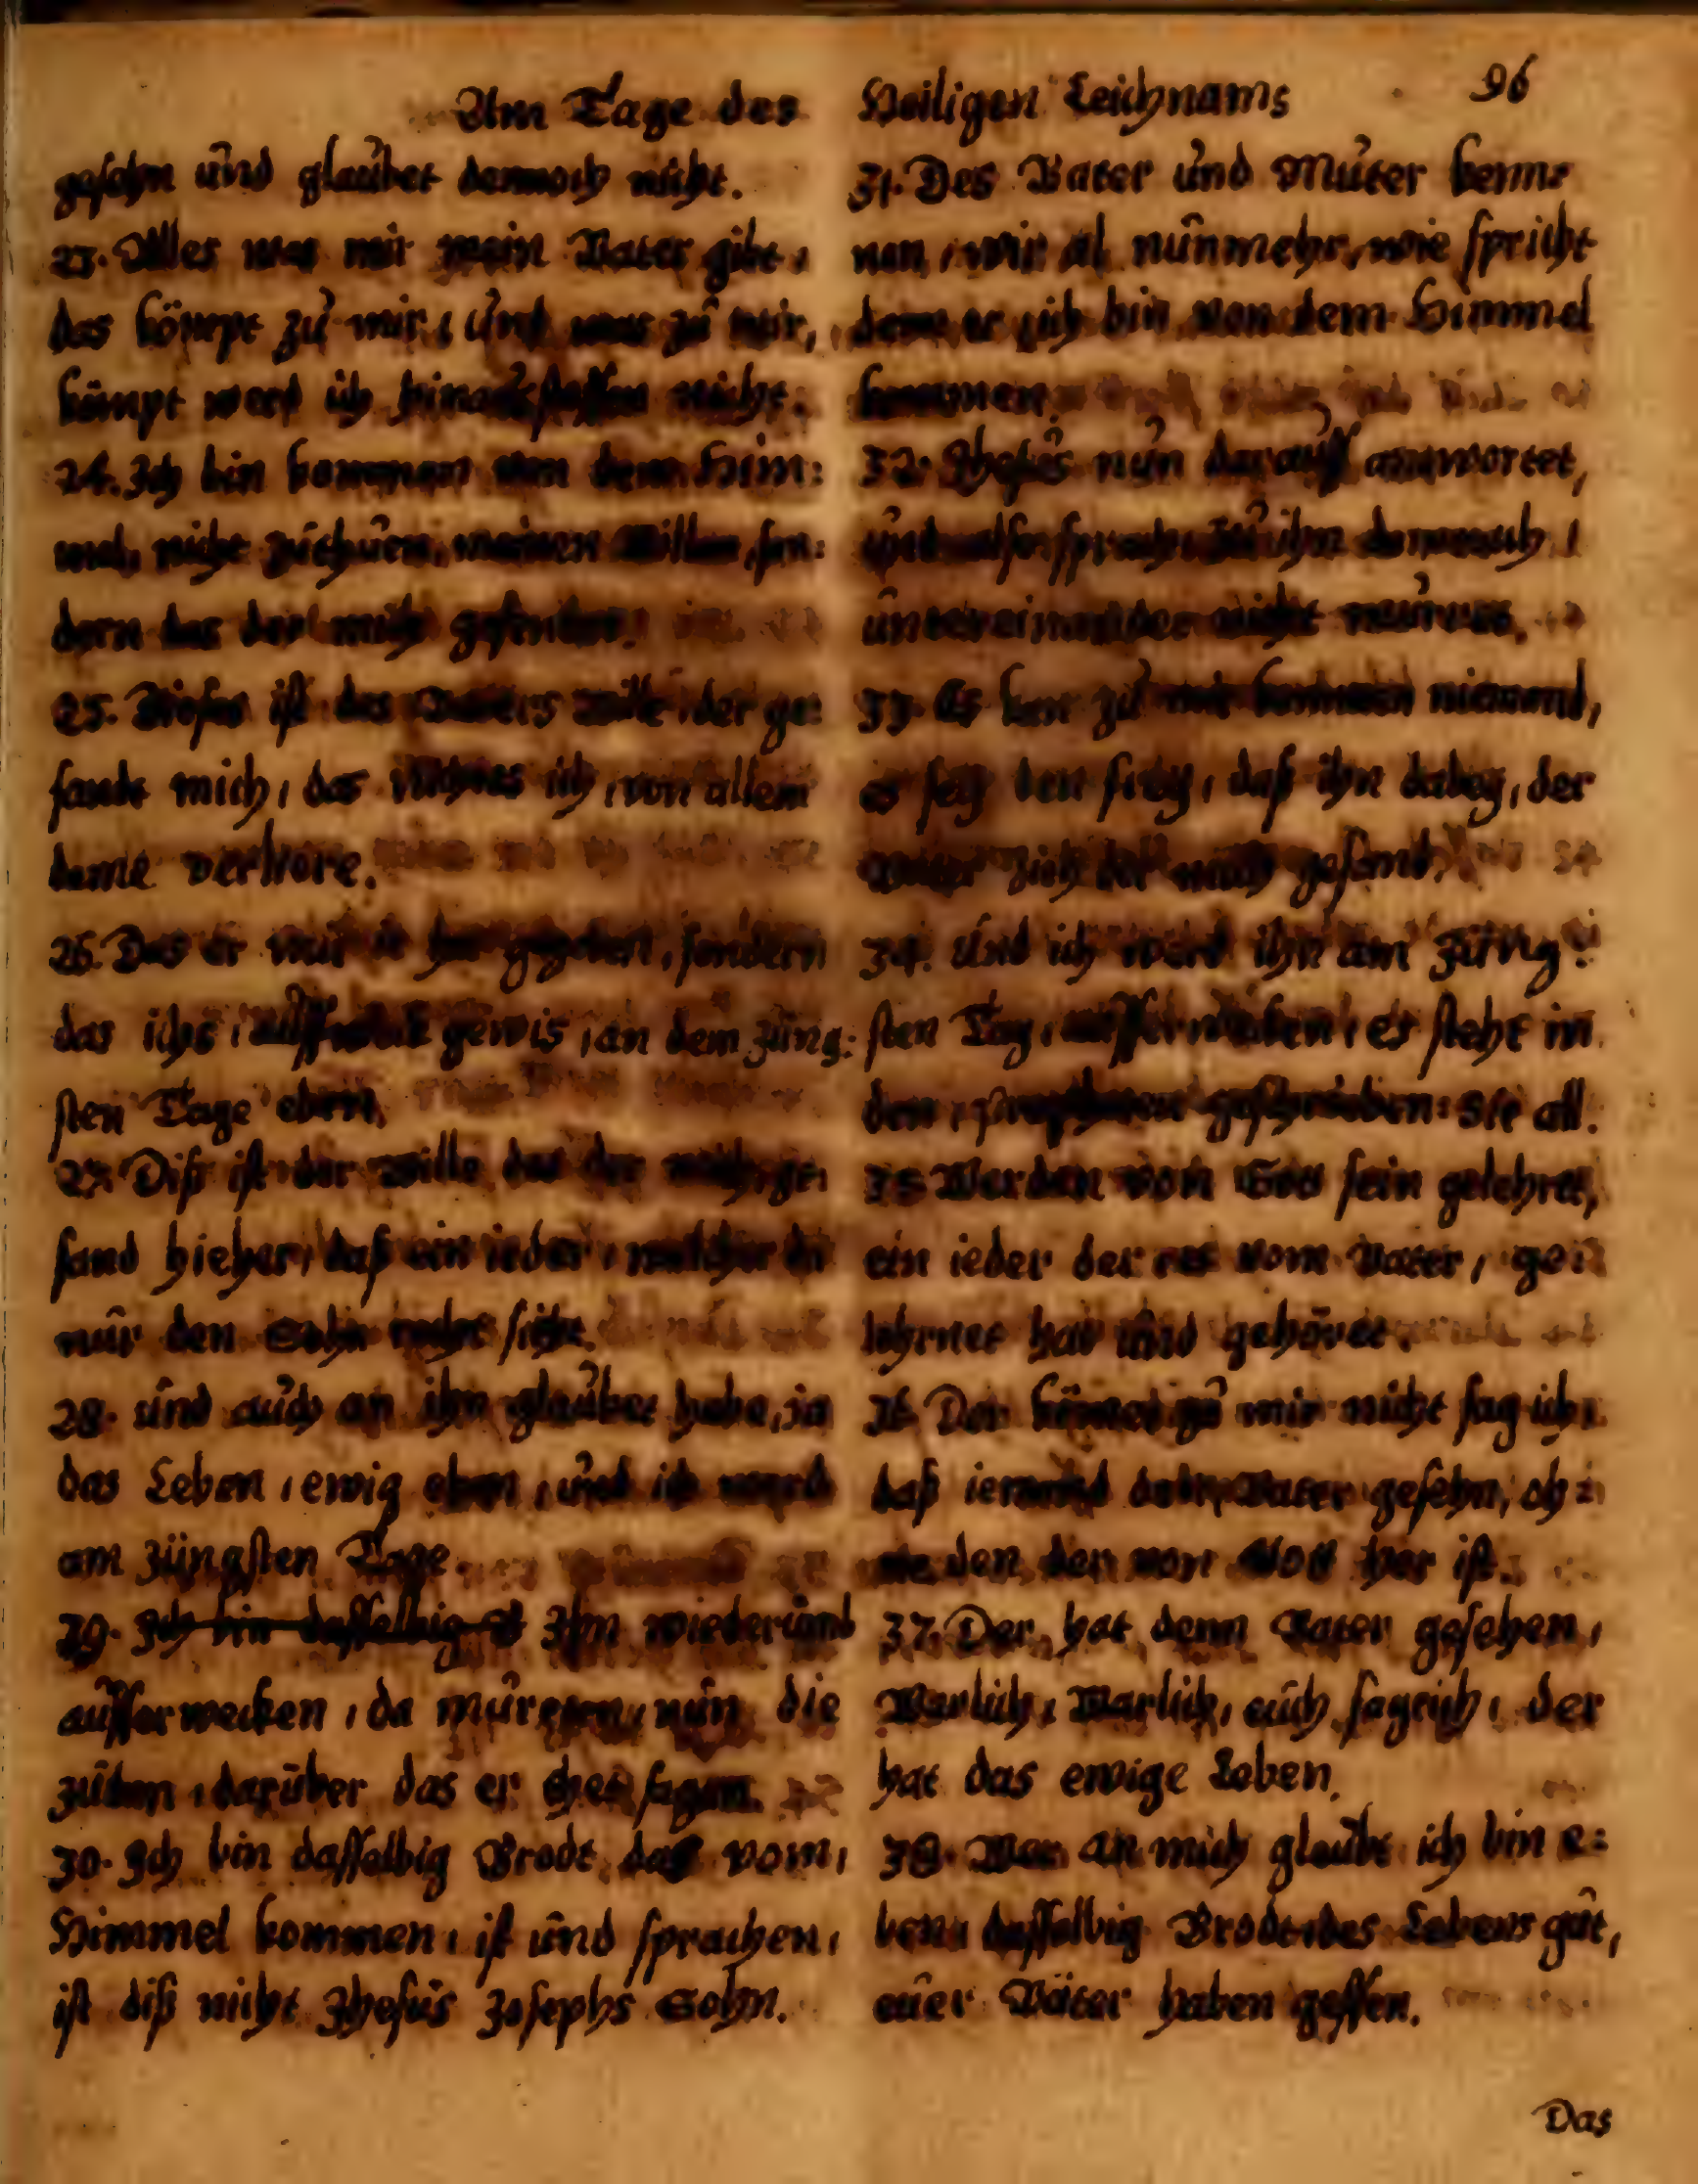 Am Tage des Heiligen Leichnams 96
gesehn und glaubet dennoch nicht.
23. Alles was mir mein Vater gibt,
das kömpt zu mir, und was zu mir,
kömpt werd ich hinausstossen nicht.
24. Ich bin kommen von dem Him:
mel, nicht zuthuen, meinen Willen, son:
dern des der mich gesendet.
25. Dieses ist des Vaters Wille, der ge:
sandt mich, das nichtes ich, von allem
deme verliere.
26. Das er mir je hat gegeben, sondern
das ichs, aufferweck gewis, an dem Jüng:
sten Tage eben.
27. Diß ist der wille des der mich, ge:
sand hieher, daß ein ieder, welcher da
nur den Sohn recht siht.
28. und auch an ihn glaubet habe, ja
das Leben, ewig eben, und ich werd
am Jüngsten Tage.
29. Ich bin dasselbig Ihn wiederumb
aufferwecken, da murreten, nun die
Juden, darüber das er thet sagen.
30. Ich bin dasselbig Brodt das vom,
Himmel kommen, ist und sprachen,
ist diß nicht Jhesus Josephs Sohn.
31. Des Vater und Muter kenn:
nen, wir al nunmehr, wie spricht
denn er ich bin von dem Himmel
kommen.
32. Jhesus nun darauff antwortet,
und also sprach, zu ihn dennoch,
untereinander nicht murret.
33. Es kan zu mir kommen niemand,
es sey den frey, daß ihn dabey, der
Vater zieh der mich gesand.
34. Und ich werd ihn am Jüng:
sten Tag, aufferwecken, es steht in
den, propheten geschrieben: Sie all.
35. Werden von Gott sein gelehret,
ein ieder der es vom Vater, ge:
lehrnet hat und gehöret.
36. Der kömet zu mir nicht sag ich,
daß iemand den Vater gesehn, oh:
ne den, der von Gott her ist.
37. Der, hat denn Vater gesehen,
Warlich, Warlich, euch sag ich, der
hat das ewige Leben.
38. Wer an mich glaubt ich bin e:
ben, dasselbig Brodt des Lebens gut,
euer Väter haben gessen.
Das